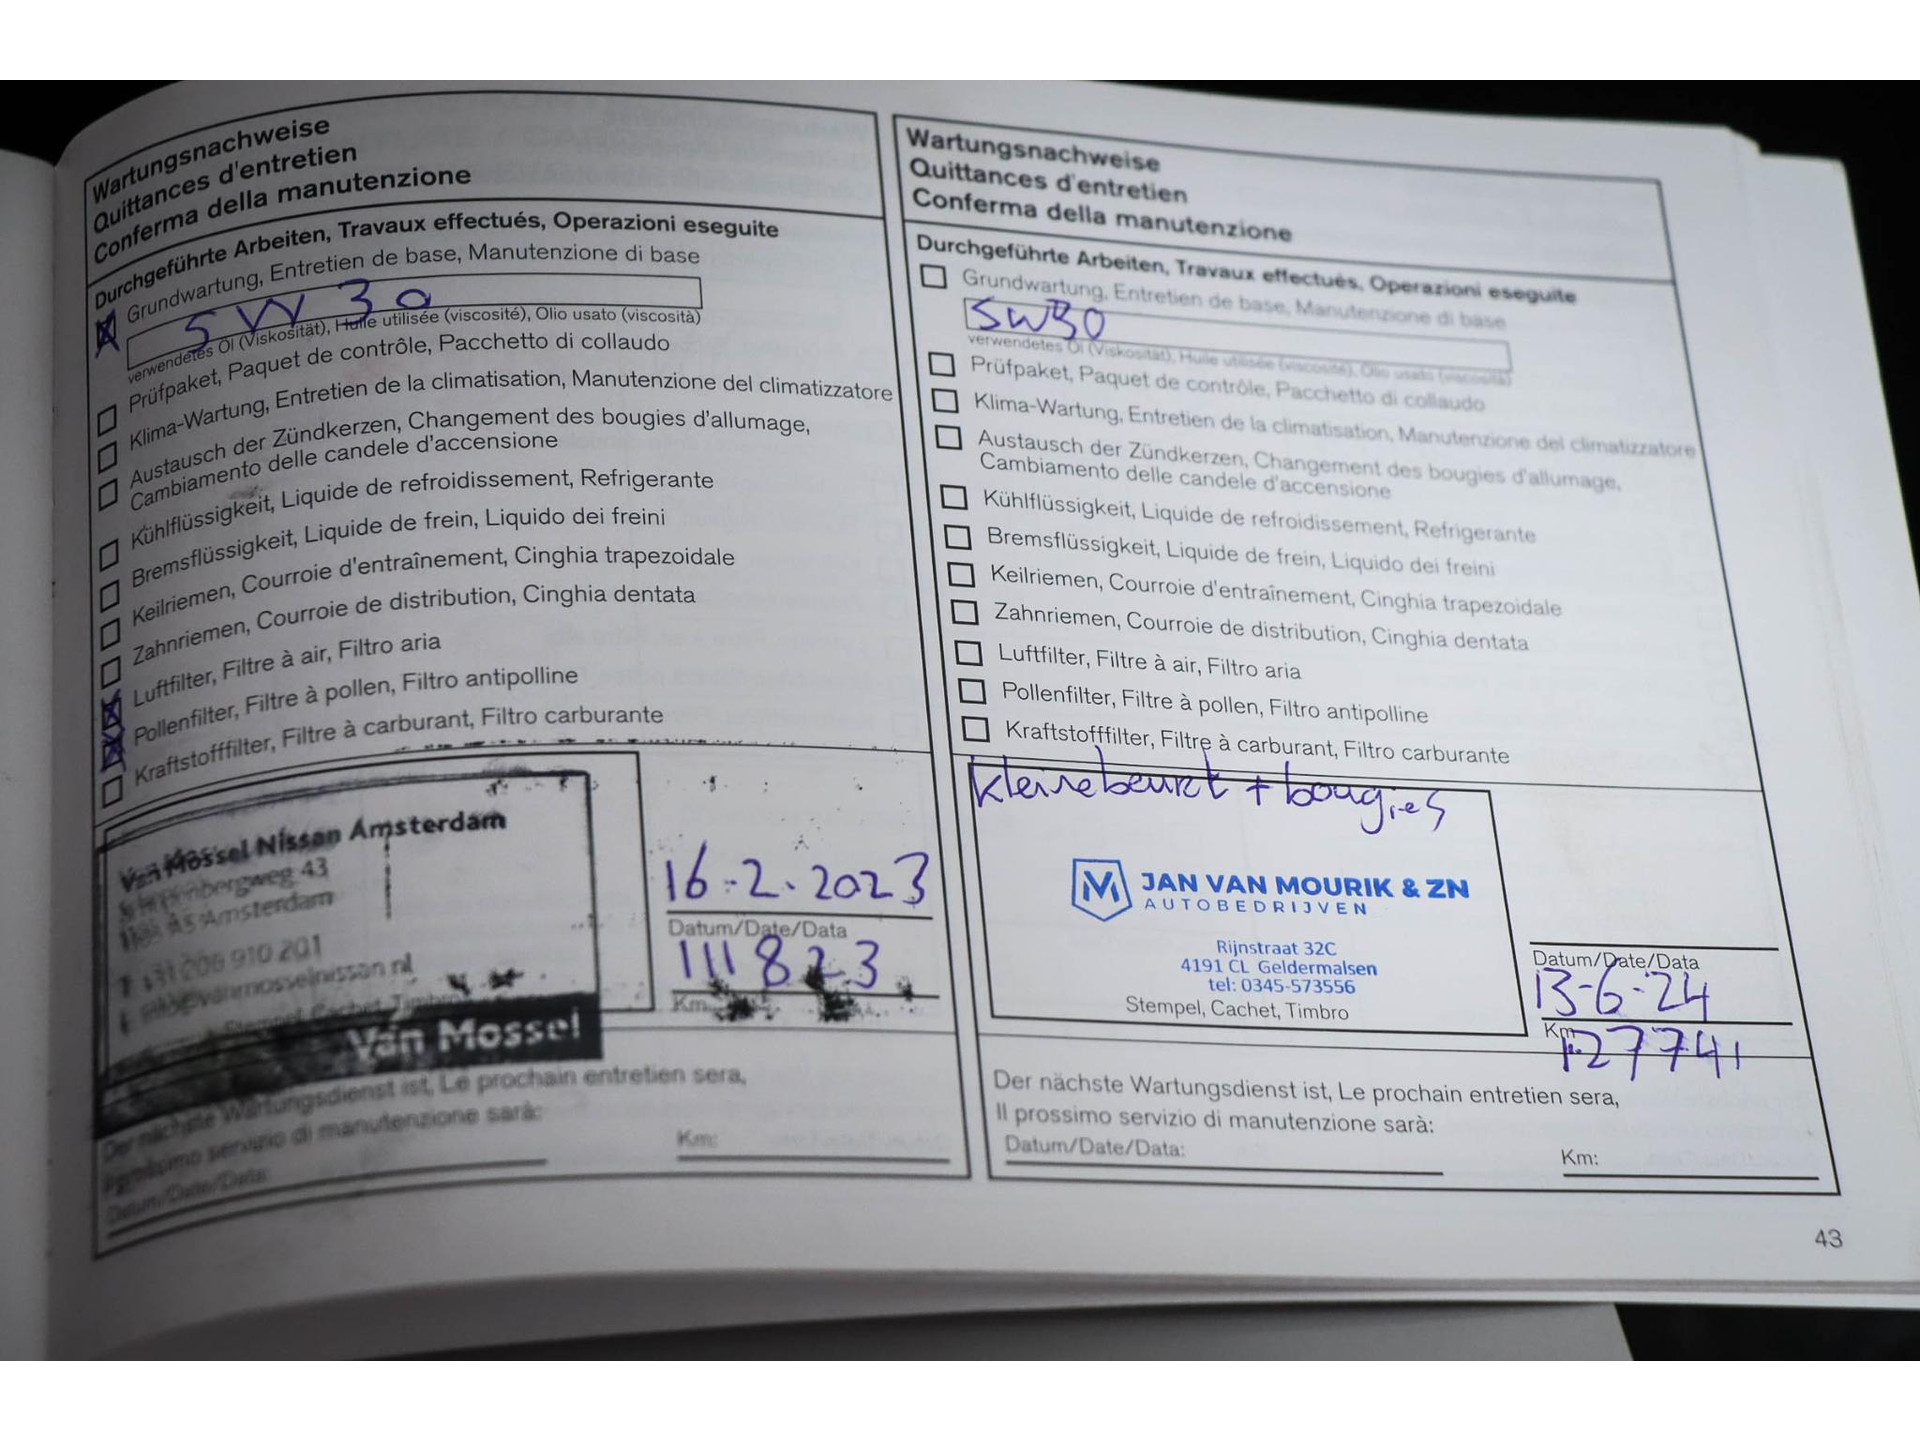 Wartungsnachweise
Quittances d'entretien
Conferma della manutenzione
Durchgeführte Arbeiten, Travaux effectués, Operazioni eseguite
Grundwartung, Entretien de base, Manutenzione di base
5W30
verwendetes Öl (Viskosität), Huile utilisée (viscosité), Olio usato (viscosità)
Prüfpaket, Paquet de contrôle, Pacchetto di collaudo
Klima-Wartung, Entretien de la climatisation, Manutenzione del climatizzatore
Austausch der Zündkerzen, Changement des bougies d'allumage,
Cambiamento delle candele d'accensione
Kühlflüssigkeit, Liquide de refroidissement, Refrigerante
Bremsflüssigkeit, Liquide de frein, Liquido dei freini
Keilriemen, Courroie d'entraînement, Cinghia trapezoidale
Zahnriemen, Courroie de distribution, Cinghia dentata
Luftfilter, Filtre à air, Filtro aria
Pollenfilter, Filtre à pollen, Filtro antipolline
Kraftstofffilter, Filtre à carburant, Filtro carburante
Van Mossel Nissan Amsterdam
43
Amsterdam
910 201
info@vanmosselnissan.nl
Stempel, Cachet, Timbro
Van Mossel
16-2-2023
Datum/Date/Data
111823
Km
Der nächste Wartungsdienst ist, Le prochain entretien sera,
Il prossimo servizio di manutenzione sarà:
Datum/Date/Data:
Km:
Wartungsnachweise
Quittances d'entretien
Conferma della manutenzione
Durchgeführte Arbeiten, Travaux effectués, Operazioni eseguite
Grundwartung, Entretien de base, Manutenzione di base
5W30
verwendetes Öl (Viskosität), Huile utilisée (viscosité), Olio usato (viscosità)
Prüfpaket, Paquet de contrôle, Pacchetto di collaudo
Klima-Wartung, Entretien de la climatisation, Manutenzione del climatizzatore
Austausch der Zündkerzen, Changement des bougies d'allumage,
Cambiamento delle candele d'accensione
Kühlflüssigkeit, Liquide de refroidissement, Refrigerante
Bremsflüssigkeit, Liquide de frein, Liquido dei freini
Keilriemen, Courroie d'entraînement, Cinghia trapezoidale
Zahnriemen, Courroie de distribution, Cinghia dentata
Luftfilter, Filtre à air, Filtro aria
Pollenfilter, Filtre à pollen, Filtro antipolline
Kraftstofffilter, Filtre à carburant, Filtro carburante
kleine beurt + bougies
JAN VAN MOURIK & ZN
AUTOBEDRIJVEN
Rijnstraat 32C
4191 CL Geldermalsen
tel: 0345-573556
Stempel, Cachet, Timbro
Datum/Date/Data
13-6-24
Km
127741
Der nächste Wartungsdienst ist, Le prochain entretien sera,
Il prossimo servizio di manutenzione sarà:
Datum/Date/Data:
Km:
43